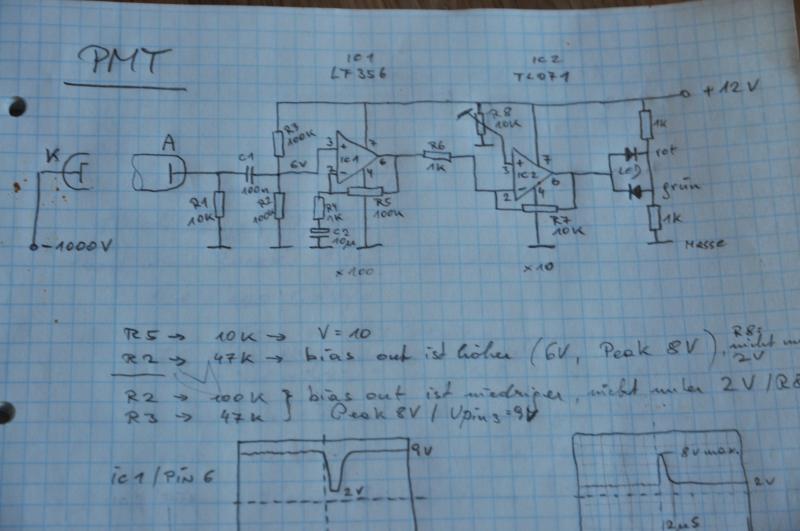 PMT
IC1
LF356
IC2
TL071
+12V
K
A
-1000V
C1
100n
R1
10K
R3
100K
6V
R2
100K
3
+
IC1
7
6
2
-
4
R4
1K
C2
10µ
R5
100K
x100
R6
1K
R8
10K
3
+
IC2
7
6
2
-
4
R7
10K
x10
1K
rot
LED
grün
1K
Masse
R5 → 10K → V = 10
R2 → 47K → bias out ist höher (6V, Peak 8V), R8:
nicht
2V
R2 → 100K } bias out ist niedriger, nicht unter 2V / R8
R3 → 47K } Peak 8V / Upin3 = 9V
ic1 / Pin 6
9V
2V
8V max.
2V
2µS